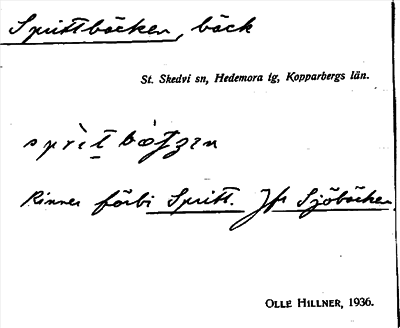 Sprittbäcken, bäck
St. Skedvi sn, Hedemora tg, Kopparbergs län.
Rinner förbi Spritt. Jfr Sjöbäcken
OLLE HILLNER, 1936.